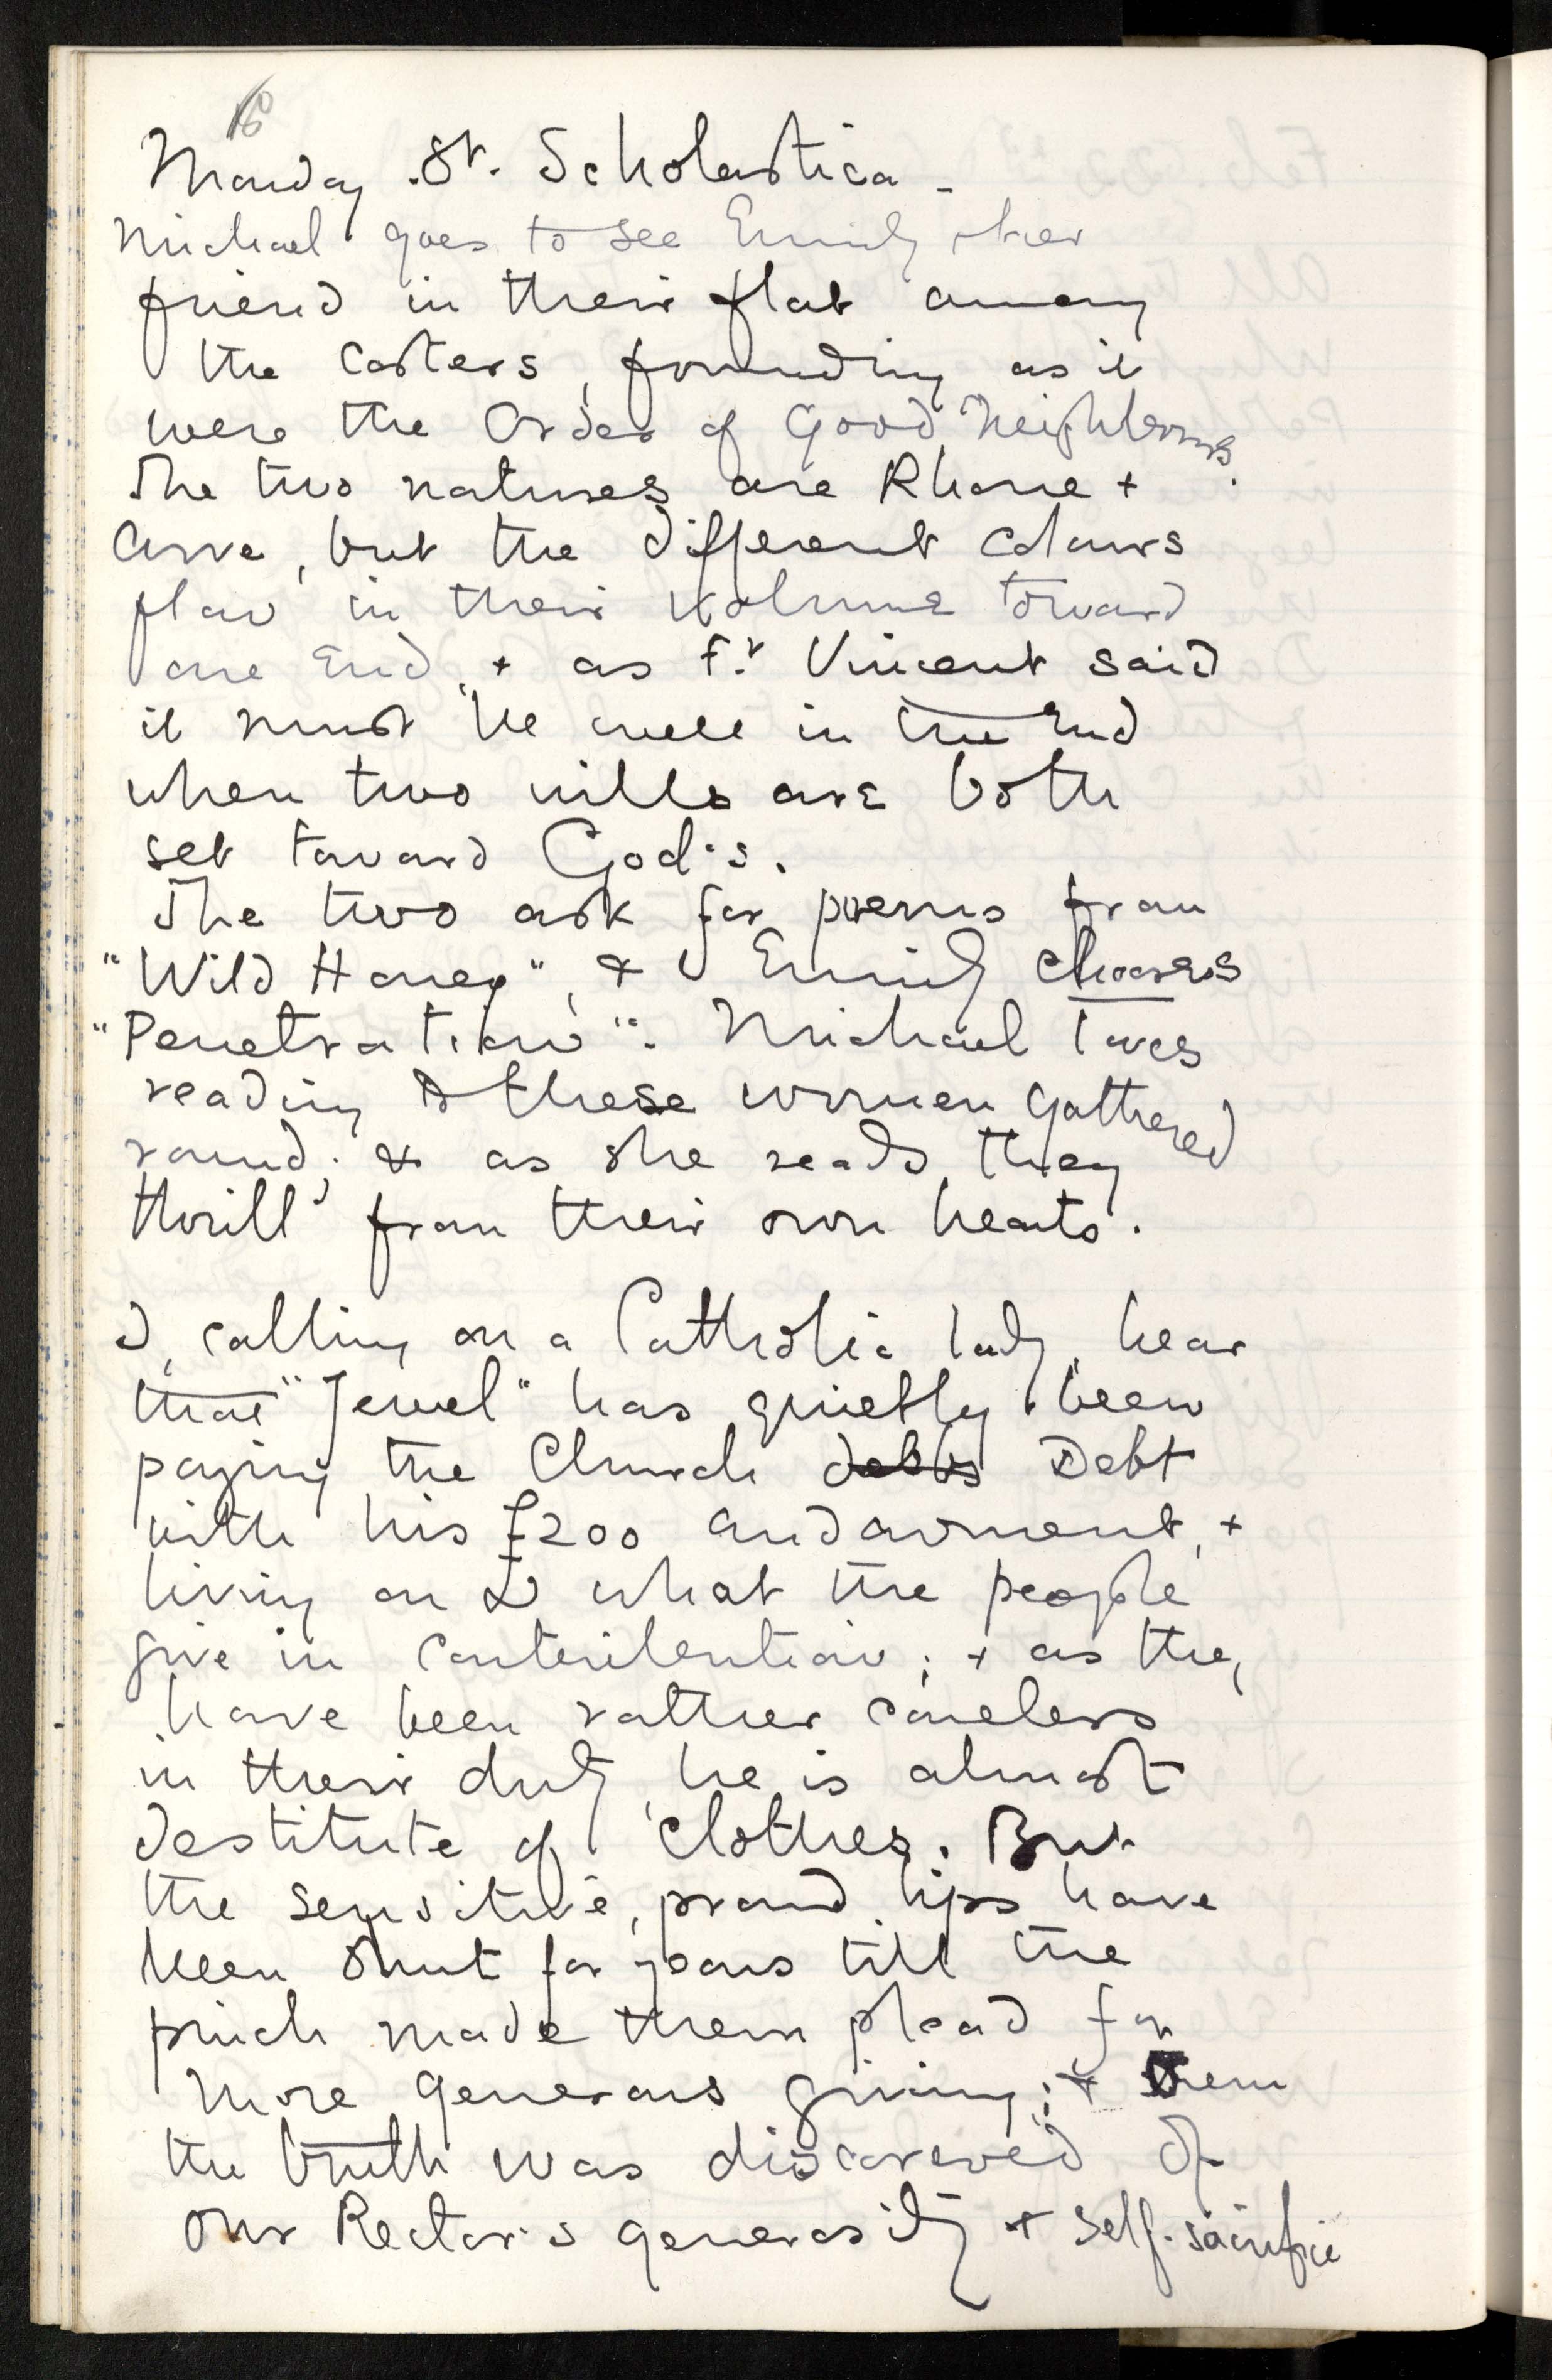 16
Monday . St. Scholastica -
Michael goes to see Emily & her
friend in their flat among
the costers, founding as it
were the Order of Good Neighbours.
The two natures are Rhone +
Arve, but the different colours
flow in their volume toward
one End, + as Fr. Vincent said
it must be well in the End
when two wills are both
set toward God's.
The two ask for poems from
"Wild Honey", & Emily chooses
"Penetration". Michael loves
reading to these women gathered
round; & as she reads they
thrill from their own hearts.
I, calling on a Catholic lady, hear
that "Jewel" has quietly been
paying the Church debts Debt
with his £200 endowment, +
living on £ what the people
give in contribution; + as they
have been rather careless
in their duty, he is almost
destitute of clothes. But
the sensitive, proud lips have
been shut for years till the
pinch made them plead for
more generous giving; + then
the truth was discovered of
our Rector's generosity + self-sacrifice